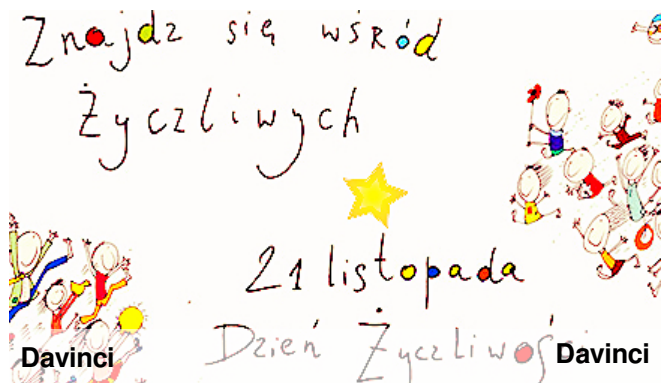 Znajdz się wśród
Życzliwych
21 listopada
Dzień Życzliwości
Davinci
Davinci